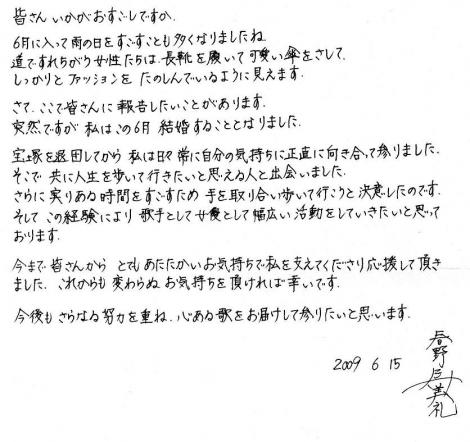 皆さん いかがおすごしですか.
6月に入って雨の日をすごすことも多くなりましたね
道ですれちがう女性たちは、長靴を履いて可愛い傘をさして、
しっかりとファッションを たのしんでいるように見えます.
さて、ここで皆さんに報告したいことがあります.
突然ですが 私はこの6月 結婚することとなりました.
宝塚を退団してから 私は日々常に自分の気持ちに正直に向き合って参りました.
そこで 共に人生を歩いて行きたいと思える人と出会いました.
さらに実りある時間をすごすため 手を取り合い歩いて行こうと決意したのです.
そして この経験により 歌手として女優として幅広い活動をしていきたいと思って
おります.
今まで皆さんから とてもあたたかいお気持ちで私を支えてくださり応援して頂き
ました. これからも変わらぬお気持ちを頂ければ幸いです.
今後も さらなる努力を重ね、心ある歌をお届けして参りたいと思います.
2009 6 15
春野寿美礼